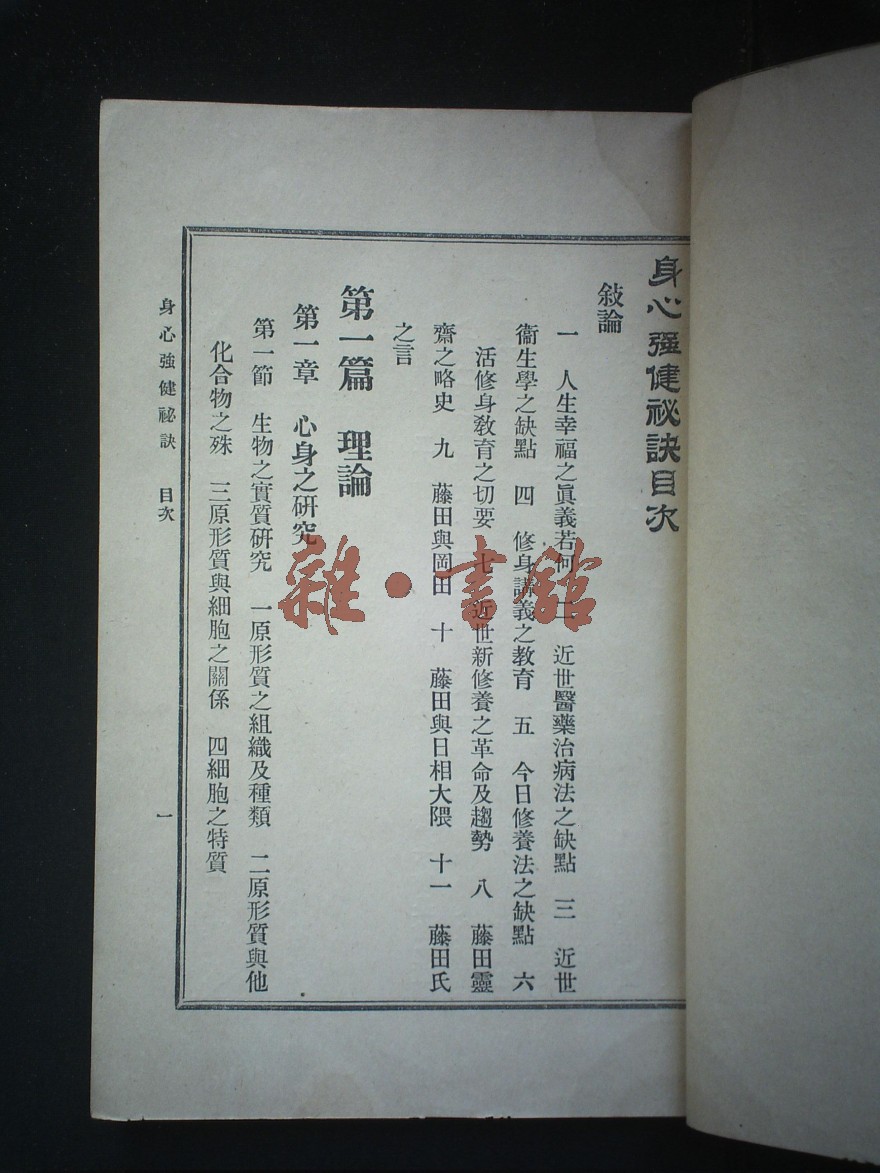 身心強健祕訣目次
敍論
一　人生幸福之眞義若何　二　近世醫藥治病法之缺點　三　近世
衞生學之缺點　四　修身講義之教育　五　今日修養法之缺點　六
活修身敎育之切要　七　近世新修養之革命及趨勢　八　藤田靈
齋之略史　九　藤田與岡田　十　藤田與日相大隈　十一　藤田氏
之言
第一篇　理論
第一章　心身之硏究
第一節　生物之實質硏究　一原形質之組織及種類　二原形質與他
化合物之殊　三原形質與細胞之關係　四細胞之特質
身心強健祕訣　目次
一
雜·書館